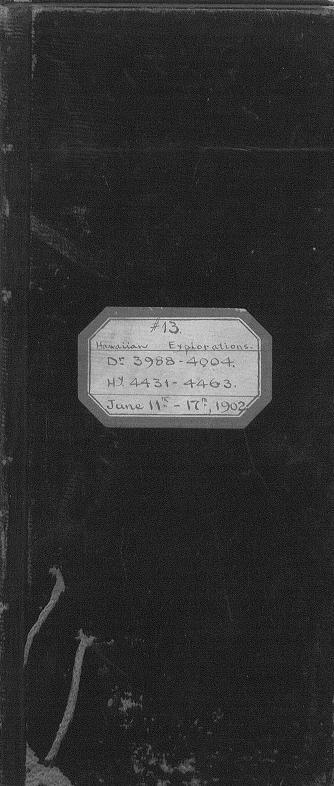 #13.
Hawaiian Explorations.
Dr. 3988-4004.
Hy. 4431-4463.
June 11th - 17th, 1902